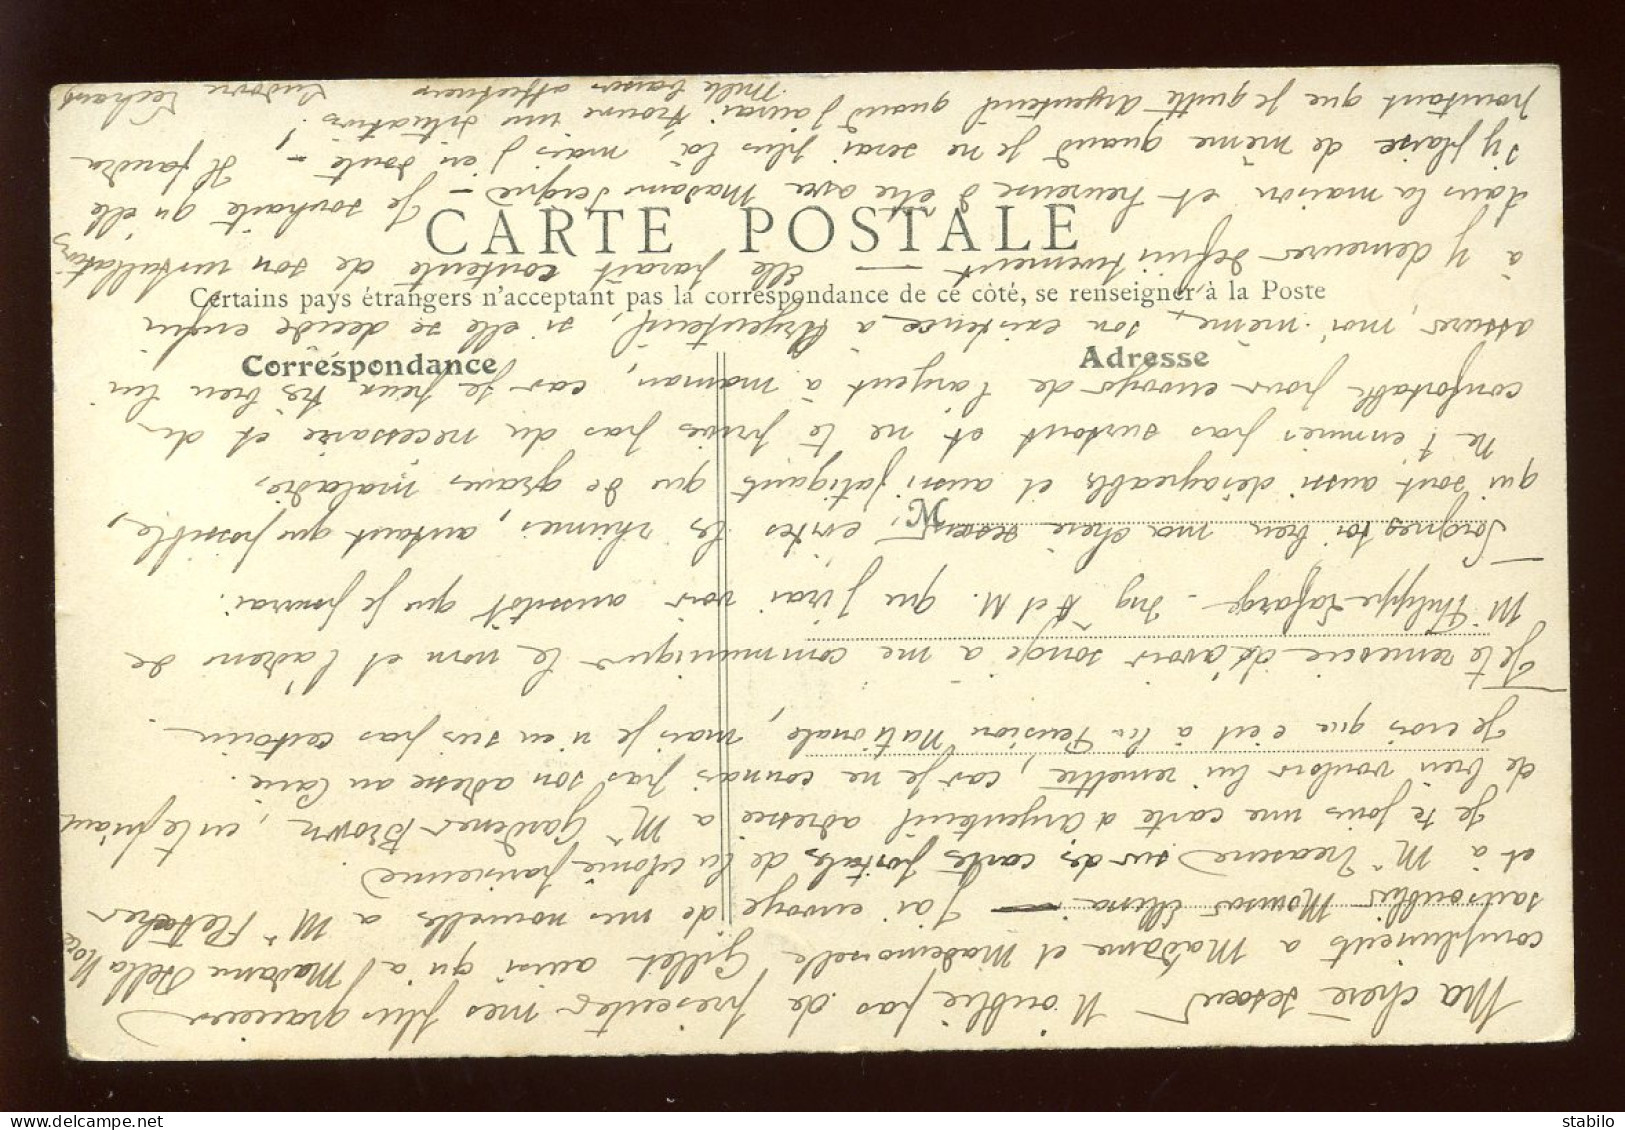 CARTE POSTALE
Certains pays étrangers n'acceptant pas la correspondance de ce côté, se renseigner à la Poste
Correspondance
Adresse
M
Ma chère N'oublie pas de présenter mes plus gracieux
compliments à Madame et Mademoiselle Gillet ainsi qu'à Madame Della
sans oublier J'ai envoyé de mes nouvelles à Mr Fletcher
et à Mr sur des cartes postales de la colonie parisienne
Je te joins une carte d'Argenteuil adressée à Mr Gardener Brown, en te priant
de bien vouloir lui remettre, car je ne connais pas son adresse au Caire.
Je crois que c'est à la Pension Nationale, mais je n'en suis pas certain.
Je te remercie d'avoir songé à me communiquer le nom et l'adresse de
Mr Philippe Lafarge - Ing A et M. que j'irai voir aussitôt que je pourrai.
Soignes toi bien ma chère évites les rhumes, autant que possible,
qui sont aussi désagréables et aussi fatigants que de graves maladies.
ne t'ennuies pas surtout et ne te prives pas du nécessaire et du
confortable pour envoyer de l'argent à maman, car je peux très bien lui
assurer, moi-même, son existence à Argenteuil, si elle se décide enfin
à y demeurer définitivement — elle paraît contente de son installation
dans la maison et heureuse d'être avec Madame - Je souhaite qu'elle
s'y plaise de même quand je ne serai plus là, mais j'en doute - Il faudra
pourtant que je quitte Argenteuil quand j'aurai trouvé une situation.
Mille baisers affectueux
delcampe.net
stabilo